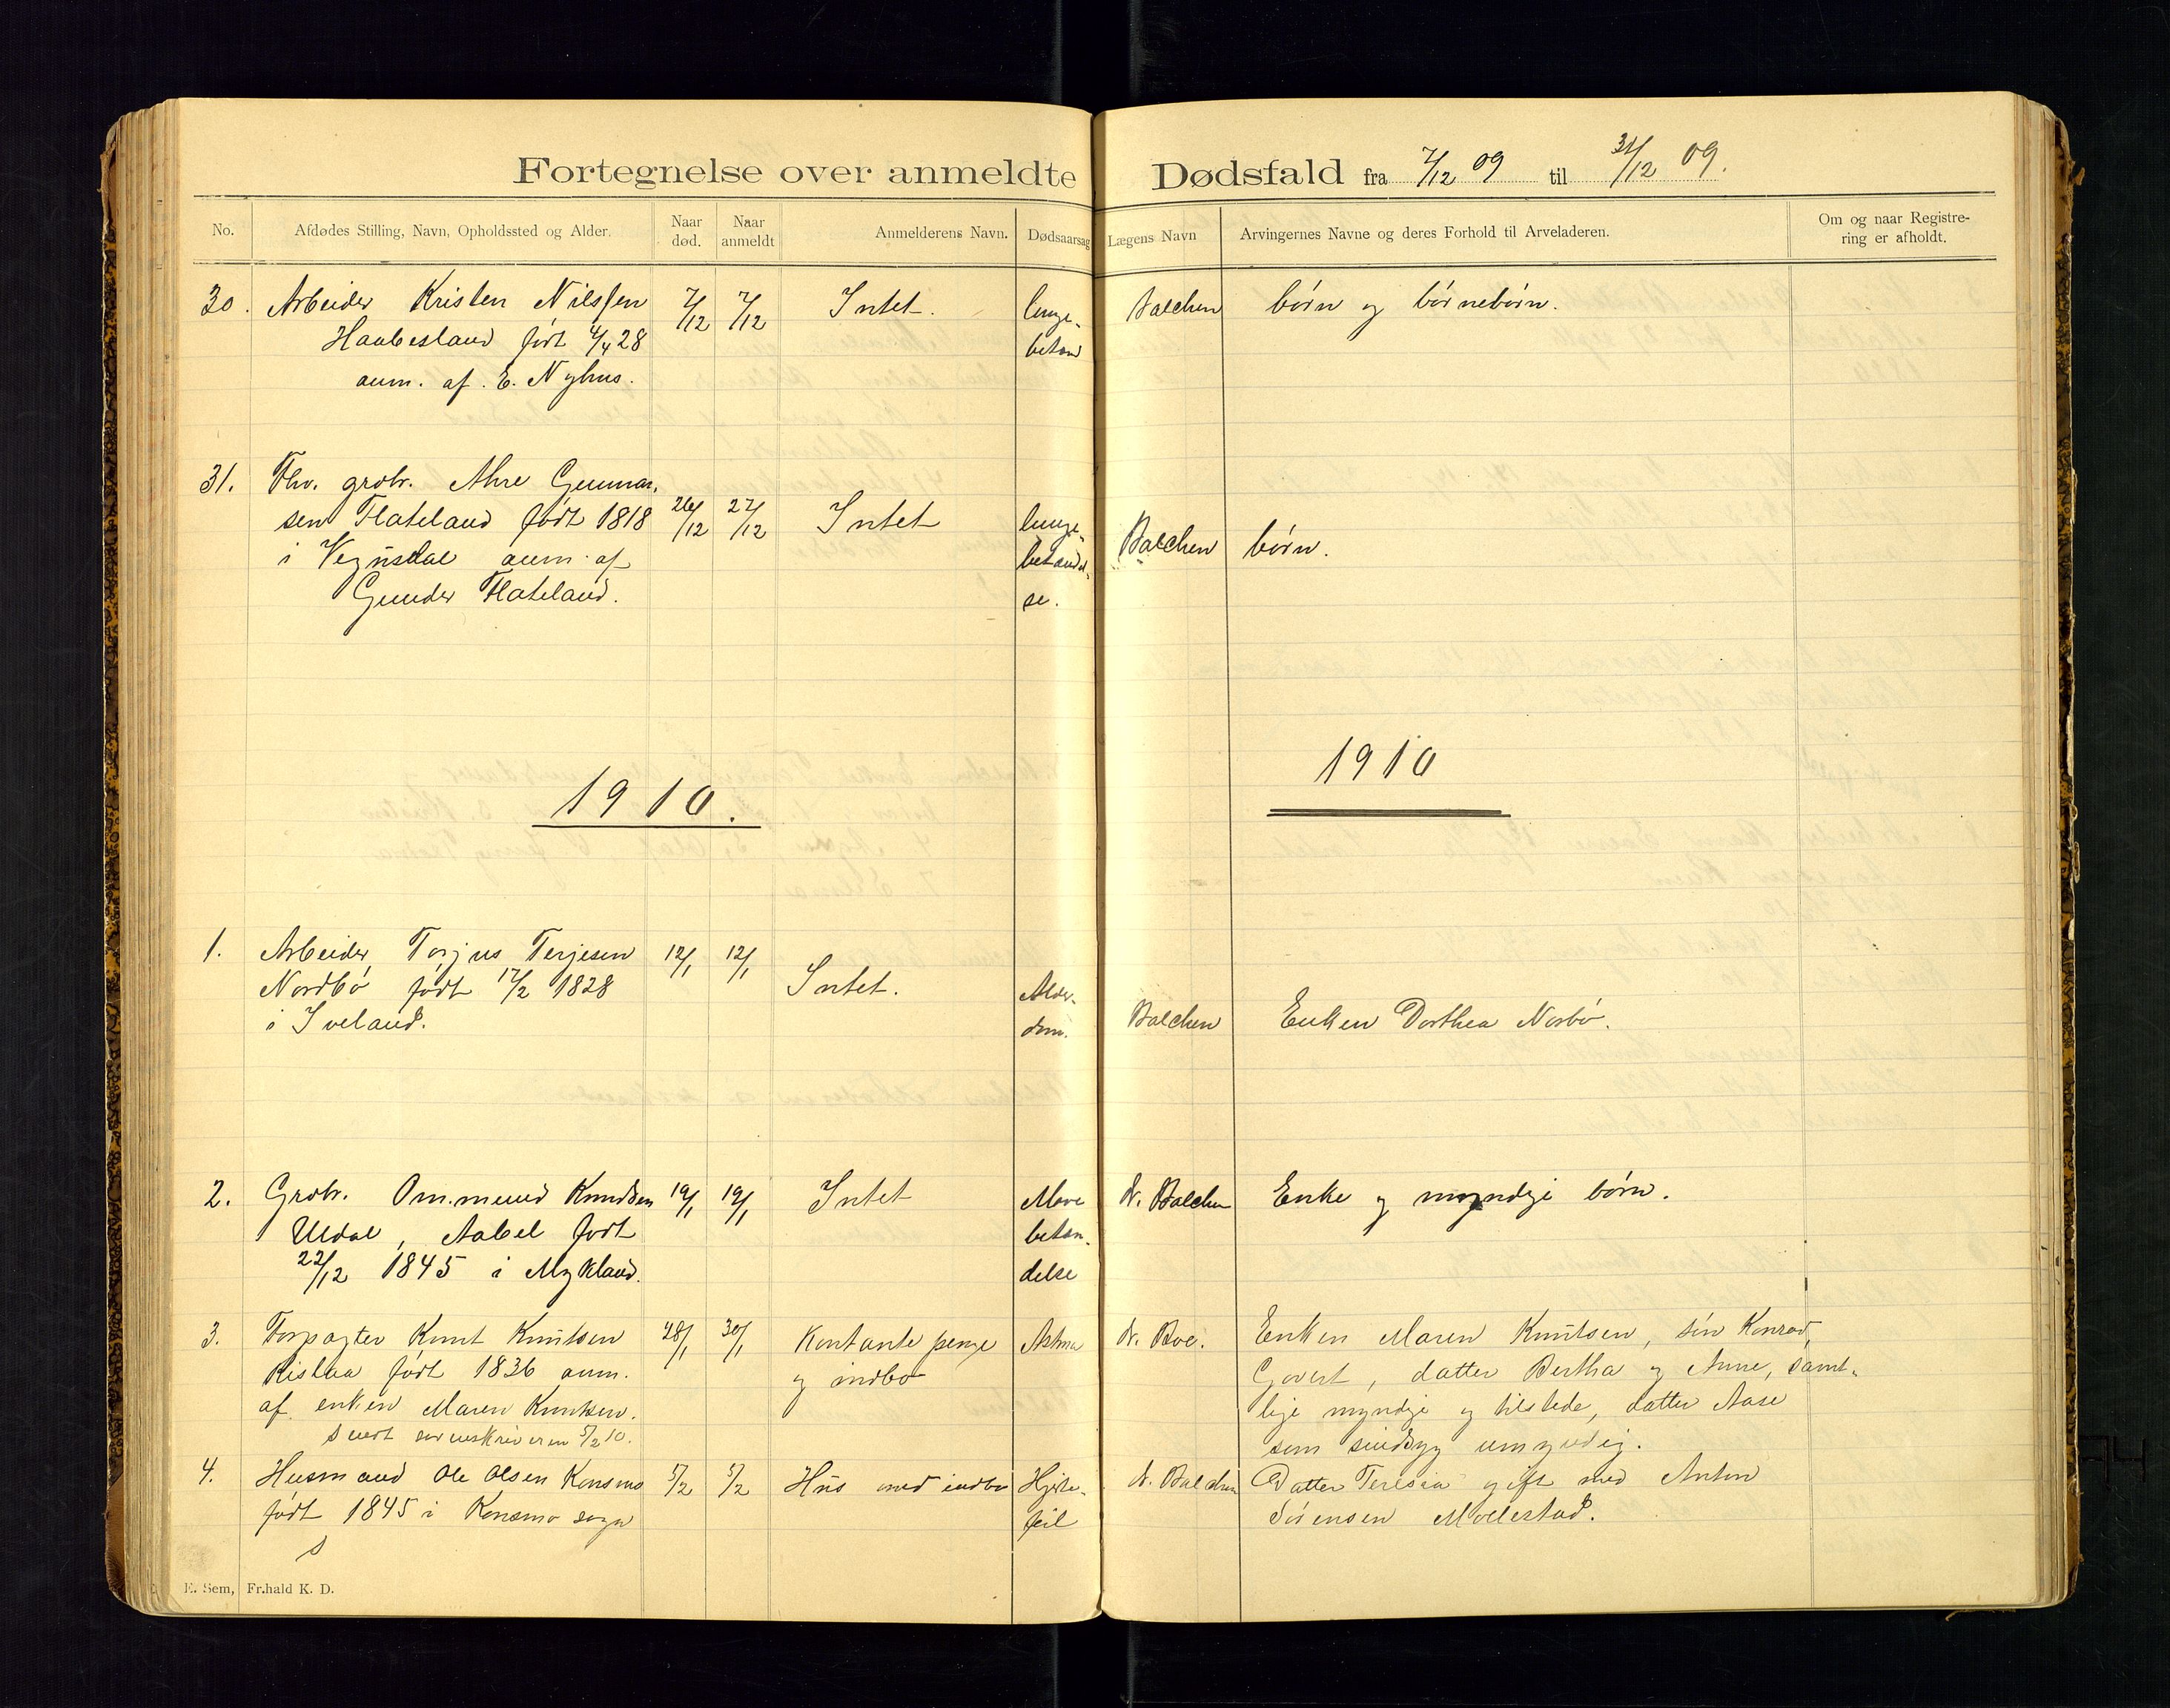 Fortegnelse over anmeldte Dødsfald fra 7/12 09 til 31/12 09.
No. Afdødes Stilling, Navn, Opholdssted og Alder. Naar død. Naar anmeldt Anmelderens Navn. Dødsaarsag Lægens Navn Arvingernes Navne og deres Forhold til Arveladeren. Om og naar Registre-
ring er afholdt.
30. Arbeider Kristen Nilssen 7/12 7/12 Intet. lunge- Balchen børn og børnebørn.
Haabesland født 4/4 28 betænd
anm. af. E. Nyhus.
31. Fhv. grdbr. Ahre Gunnar-
sen Flateland født 1818 26/12 27/12 Intet lunge- Balchen børn.
i Vegusdal anm. af betændel-
Gunder Flateland. se.
1910.
1910
1. Arbeider Torjus Terjesen 12/1 12/1
Nordbø født 17/2 1828 Intet. Alder-
i Iveland. dom. Balchen Enken Dorthea Norbø.
2. Grdbr. Ommund Knudsen 19/1 19/1 Intet Mave D. Balchen Enke og myndige børn.
Uldal, Aabel født betæn-
22/12 1845 i Mykland. delse
3. Forpagter Knut Knutsen 28/1 30/1 Kontante penge Astma D. Boe. Enken Maren Knutsen, søn Konrad,
født 1836 anm. og indbo Govert, datter Bertha og Anne, samt-
af enken Maren Knutsen. lige myndige og tilstede, datter Aase
Sendt sorenskriveren 5/2 10. som sindssyg umyndig.
4. Husmand Ole Olsen Konsmo 5/2 5/2 Hus med indbo Hjerte- D. Balchen Datter Teresia gift med Anton
født 1845 i Konsmo sogn feil Sørensen Mollestad.
S
E. Sem, Fr.hald K. D.